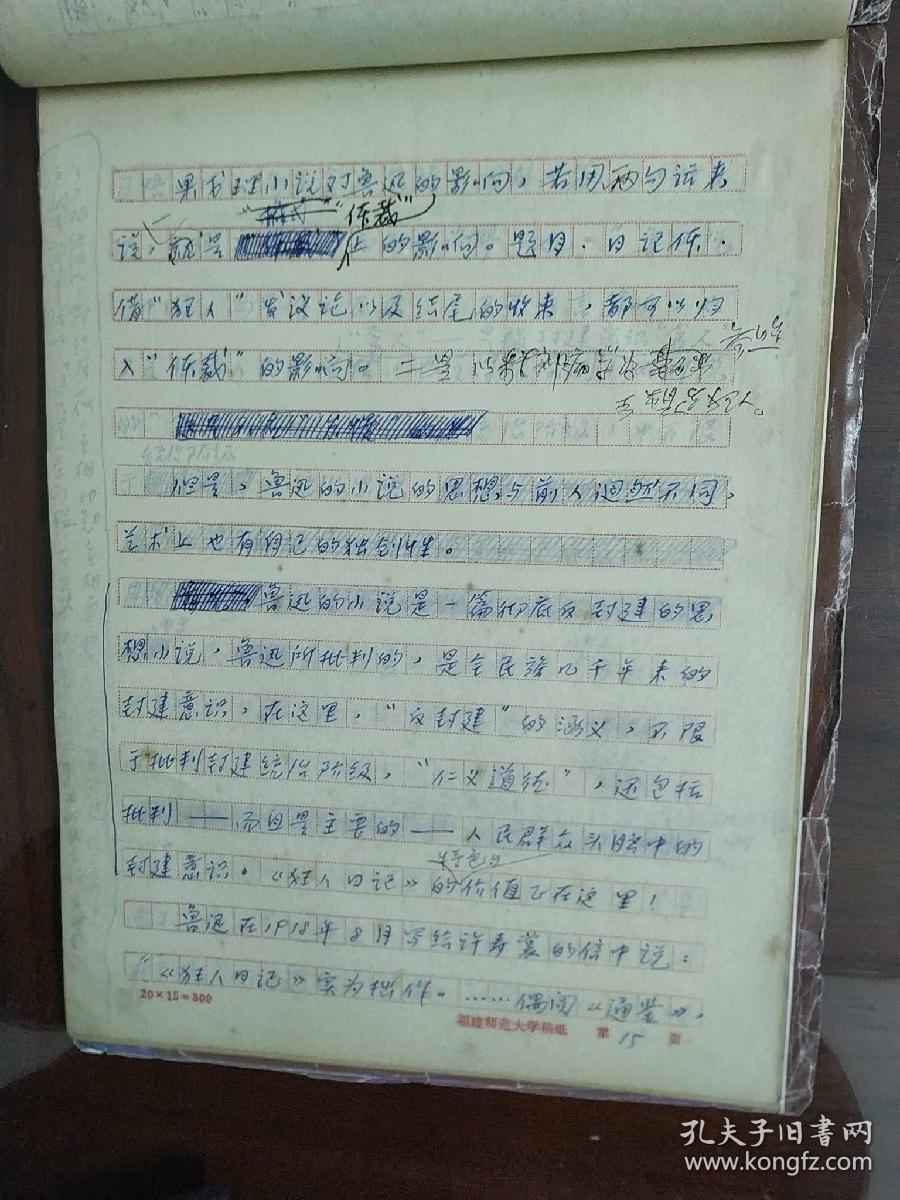 果戈理小说对鲁迅的影响，若用两句话来
"体裁"
说，就是上的影响。题目、日记体、
借"狂人"发议论以及结尾的收束，都可以归
入"体裁"的影响。二是
但是，鲁迅的小说的思想与前人迥然不同，
艺术上也有自己的独创性。
鲁迅的小说是一篇彻底反封建的思
想小说，鲁迅所批判的，是全民族几千年来的
封建意识，在这里，"反封建"的涵义，不限
于批判封建统治阶级，"仁义道德"，还包括
批判——而且是主要的——人民群众头脑中的
特色与
封建意识。《狂人日记》的价值正在这里！
鲁迅在1918年8月写给许寿裳的信中说：
"《狂人日记》实为拙作。……偶阅《通鉴》，
20×15=300
福建师范大学稿纸 第15页
孔夫子旧书网
www.kongfz.com